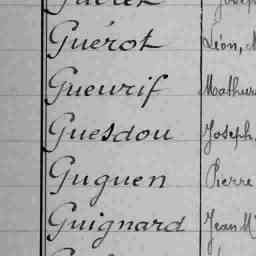 Guérot Léon,
Gueurif Mathur
Guesdou Joseph
Guguen Pierre
Guignard Jean M